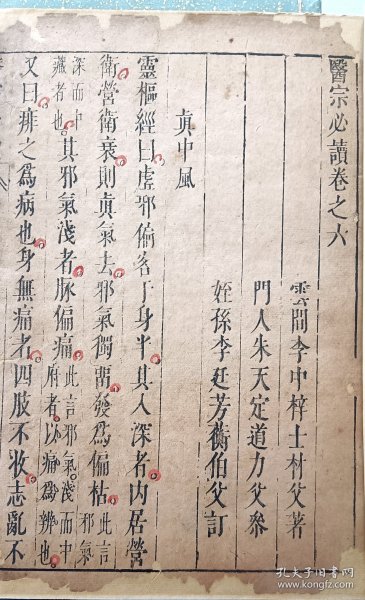 醫宗必讀卷之六
雲間李中梓士材父著
門人朱天定道力父參
姪孫李廷芳蘅伯父訂
眞中風
靈樞經曰虛邪偏客于身半其入深者内居營
衛營衛衰則眞氣去邪氣獨留發爲偏枯此言邪氣
深而中藏者也其邪氣淺者脉偏痛此言邪氣淺而中府者以痛爲辨也
又曰痱之爲病也身無痛者四肢不收志亂不
孔夫子旧书网